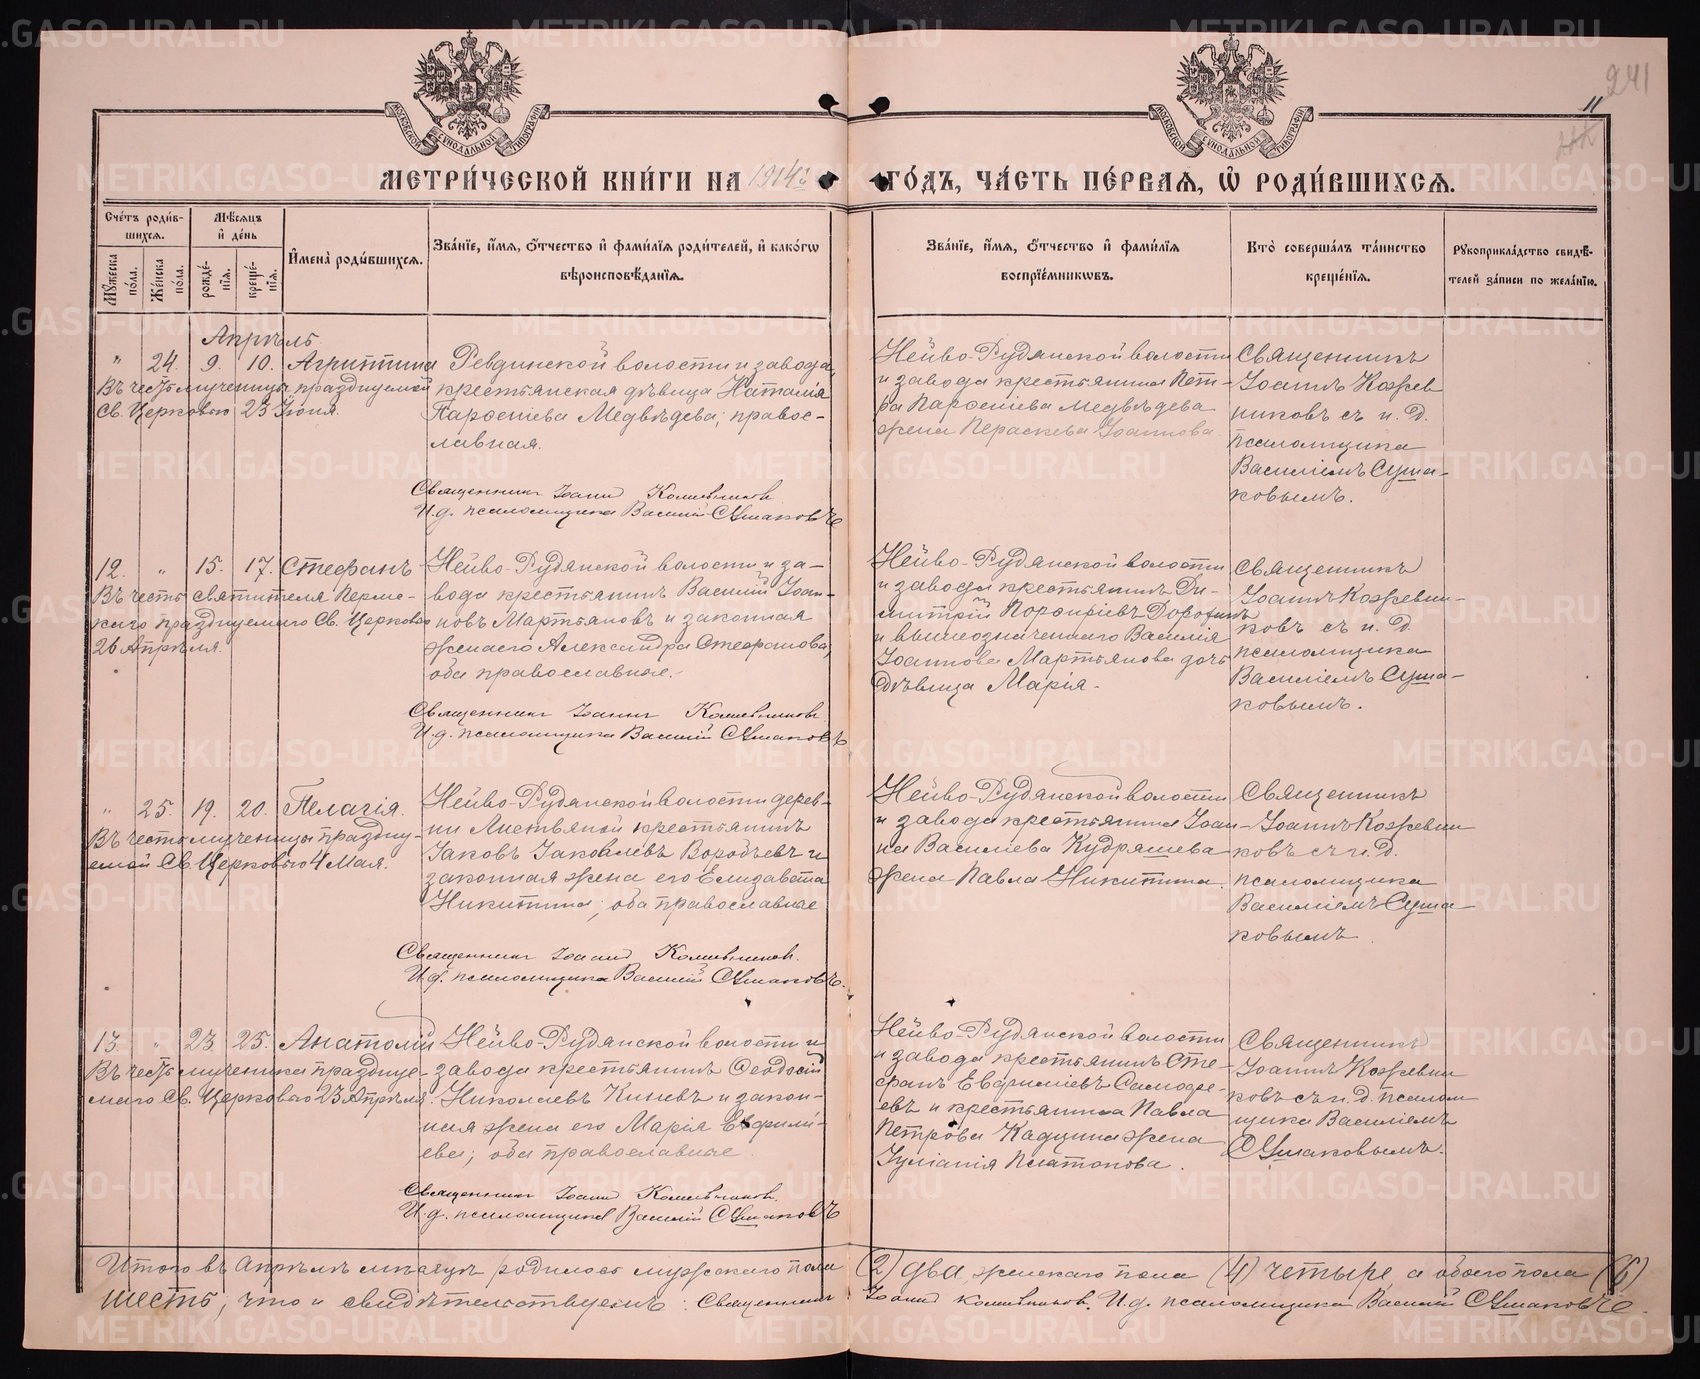 241
11
МОСКОВСКОЙ СѴНОДАЛЬНОЙ ТИПОГРАФІИ
МОСКОВСКОЙ СѴНОДАЛЬНОЙ ТИПОГРАФІИ
МЕТРИ́ЧЕСКОЙ КНИ́ГИ НА 1914й ГО́ДЪ, ЧА́СТЬ ПЕ́РВАЯ, Ѡ҆ РОДИ́ВШИХСЯ.
Сче́тъ роди́в-
шихся.
Мѣ́сяцъ
и҆ де́нь
Мꙋ́жеска
по́ла.
Же́нска
по́ла.
рожде́-
нїѧ.
креще́-
нїѧ.
И҆мена̀ роди́вшихсѧ.
Зва́нїе, и҆́мѧ, ѻ҆́тчество и҆ фами́лїѧ роди́телей, и҆ како́гѡ
вѣроисповѣ́данїѧ.
Зва́нїе, и҆́мѧ, ѻ҆́тчество и҆ фами́лїѧ
воспрїе́мникѡвъ.
Кто̀ соверша́лъ та́инство
креще́нїѧ.
Рꙋкоприкла́дство свидѣ́-
телей за́писи по жела́нїю.
Апрѣль
" 24. 9. 10. Агриппина
Въ честь мученицы празднуемой
Св. Церковью 23 Іюня.
Ревдинской волости и завода,
крестьянская дѣвица Наталія
Парѳеніева Медвѣдева; правос-
лавная.
Священникъ Іоаннъ Кожевниковъ
И.д. псаломщика Василій Сушаковъ
Нейво-Рудянской волости
и завода крестьянина Пет-
ра Парѳеніева Медвѣдева
жена Параскева Іоаннова.
Священникъ
Іоаннъ Кожев
никовъ съ и. д.
псаломщика
Василіемъ Суша-
ковымъ.
12. " 15. 17. Стефанъ
Въ честь святителя Перм-
скаго празднуемаго Св. Церковью
26 Апрѣля.
Нейво-Рудянской волости и за-
вода крестьянинъ Василій Іоан-
новъ Мартьяновъ и законная
жена его Александра Стефанова,
оба православные.
Священникъ Іоаннъ Кожевниковъ
И.д. псаломщика Василій Сушаковъ
Нейво-Рудянской волости
и завода крестьянинъ Ди-
митрій Порфиріевъ
и вышеозначеннаго Василія
Іоаннова Мартьянова дочь
дѣвица Марія.
Священникъ
Іоаннъ Кожевни-
ковъ съ и. д.
псаломщика
Василіемъ Суша-
ковымъ.
" 25. 19. 20. Пелагія.
Въ честь мученицы праздну-
емой Св. Церковью 4 Мая.
Нейво-Рудянской волости дерев-
ни Листвяной крестьянинъ
Іаковъ Іаковлевъ Воробьевъ и
законная жена его Елизавета
Никитина; оба православные
Священникъ Іоаннъ Кожевниковъ.
И.д. псаломщика Василій Сушаковъ.
Нейво-Рудянской волости
и завода крестьянина Іоан-
на Василіева Кудряшева
жена Павла Никитина.
Священникъ
Іоаннъ Кожевни
ковъ съ и. д.
псаломщика
Василіемъ Суша-
ковымъ
13. " 23. 25. Анатолій
Въ честь мученика праздну-
емаго Св. Церковью 23 Апрѣля.
Нейво-Рудянской волости и
завода крестьянинъ Ѳеодосій
Николаевъ Киневъ и закон-
ная жена его Марія Евфимі-
ева; оба православные
Священникъ Іоаннъ Кожевниковъ.
И.д. псаломщика Василій Сушаковъ
Нейво-Рудянской волости
и завода крестьянинъ Сте-
фанъ Евфиміевъ
и крестьянина Павла
Петрова Кадцина жена
Іуліанія Платонова.
Священникъ
Іоаннъ Кожевни
ковъ съ и. д. псалом
щика Василіемъ
Сушаковымъ.
Итого въ Апрѣлѣ мѣсяцѣ родилось мужскаго пола (2) два, женскаго пола (4) четыре, а обоего пола (6)
шесть, что и свидѣтельствуемъ: Священникъ Іоаннъ Кожевниковъ. И.д. псаломщика Василій Сушаковъ.
METRIKI.GASO-URAL.RU